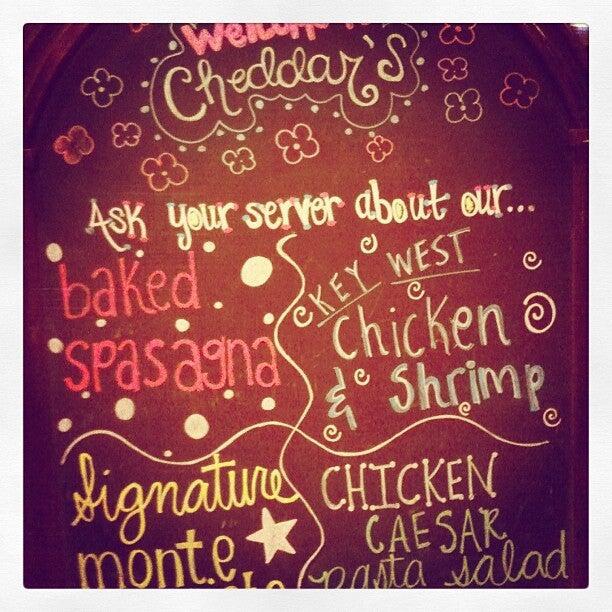 Welcome
Cheddar's
Ask your server about our...
baked
spasagna
KEY WEST
Chicken
& Shrimp
Signature
monte
CHICKEN
CAESAR
pasta salad